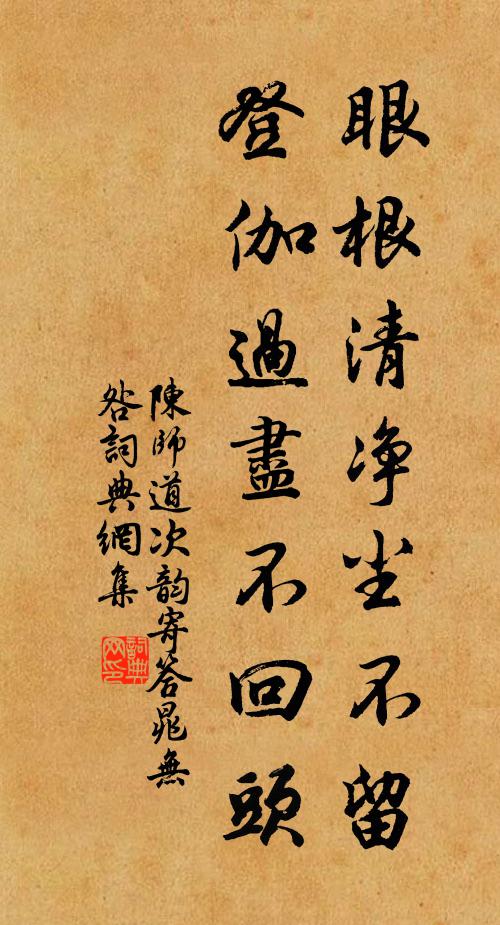 眼根清净尘不留
登伽過盡不回頭
陳師道次韵寄答晁無
咎詞典網集
詞典
网印